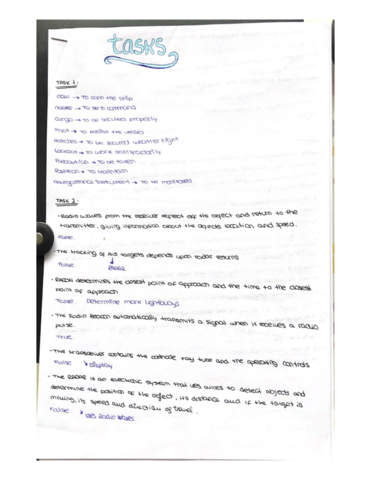 tasks
TASK 1:
→ To be in command
Cargo → To be secured properly
Pilot → To
Hatches → To be secured weather tight
Lookout → To work satisfactorily
Precaution → To be taken
Position → To maintain
→ To be monitored
TASK 2:
- Radio waves from the receiver reflect off the object and return to the
transmitter, giving information about the objects location and speed.
False.
- The tracking of AIS targets depends upon radar returns
False.
- determines the closest point of approach and the time to the closest
point of approach
False. Determine mark lightbuoys
- The Radio Beacon automatically transmits a signal when it receives a radio
pulse.
True.
- The transceiver contains the cathode ray tube and the operating controls
False ↳ display
- The is an electronic system that uses waves to detect objects and
determine the position of the object, its distance and if the target is
moving, its speed and direction of travel.
False ↳ uses radio waves